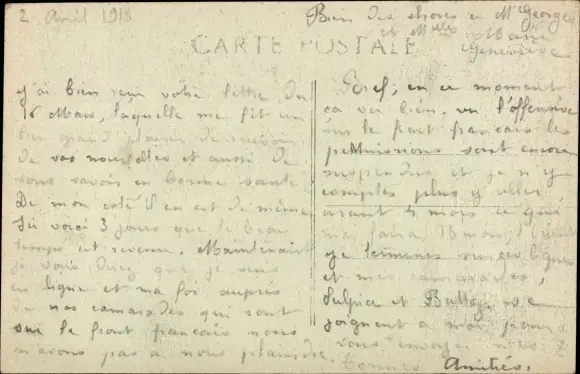 2 Avril 1918
Bien des choses à Mr Georges
et Melles Marie
Geneviève
CARTE POSTALE
j'ai bien reçu votre lettre du
16 Mars, laquelle me fit un
bien grand plaisir de recevoir
de vos nouvelles et aussi de
vous savoir en bonne santé
De mon coté il en est de même
Ici voici 3 jours que le beau
temps est revenu. Maintenant
je vous direz que je suis
en ligne et ma foi auprès
de nos camarades qui sont
sur le front français nous
n'avons pas à nous plaindre
Bref, en ce moment
ça va bien, vu l'offensive
sur le front français les
permissions sont encore
suspendues et je n'y
comptes plus y aller
avant 4 mois ce qui
me fera 18 mois.
je termines mes lignes
et mes camarades,
Sulpice et se
joignent à moi pour
vous envoyer nos
bonnes Amitiés.